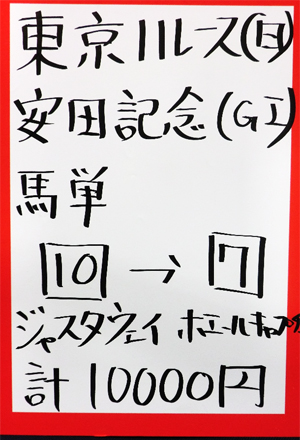 東京11レース(日)
安田記念(GI)
馬単
10→7
ジャスタウェイ ホエールキャプチャ
計10000円